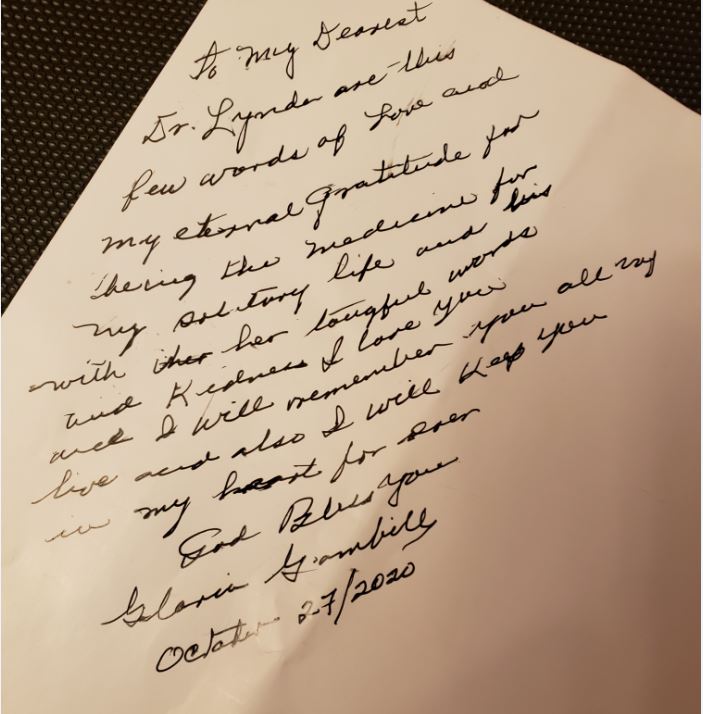 To My Dearest
Dr. Lynda are this
few words of Love and
my eternal gratitude for
being the medicine for
my solitary life and his
with her her tougful words
and Kidness I love you
and I will remember you all my
live and also I will Keep you
in my heart for ever
God Bless you
Gloria Gambill
October 27/2020